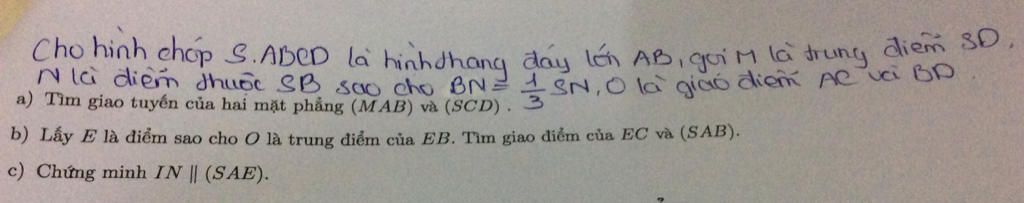 Cho hình chóp S.ABCD là hình thang đáy lớn AB, gọi M là trung điểm SD,
N là điểm thuộc SB sao cho BN = 1/3 SN, O là giao điểm AC và BD.
a) Tìm giao tuyến của hai mặt phẳng (MAB) và (SCD).
b) Lấy E là điểm sao cho O là trung điểm của EB. Tìm giao điểm của EC và (SAB).
c) Chứng minh IN ∥ (SAE).